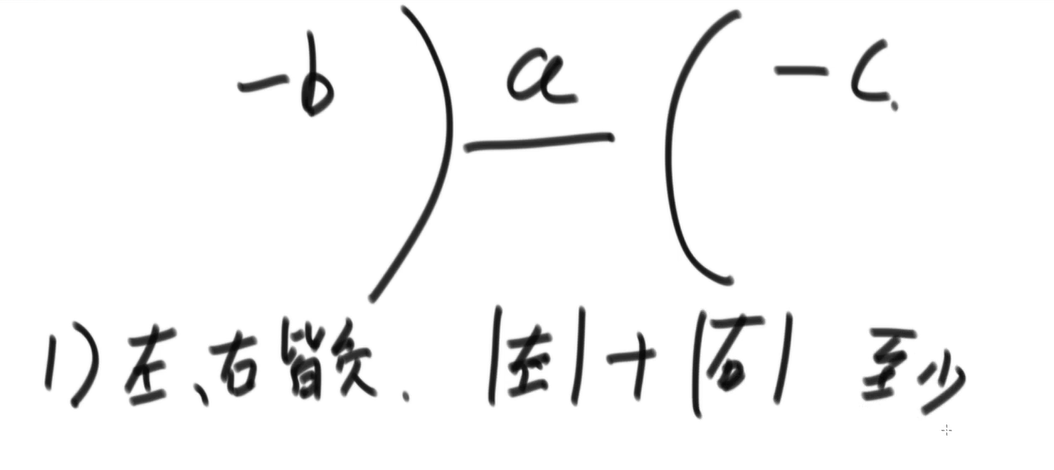 -b ) a ( -c.
1) 左、右皆负. |左|+|右| 至少